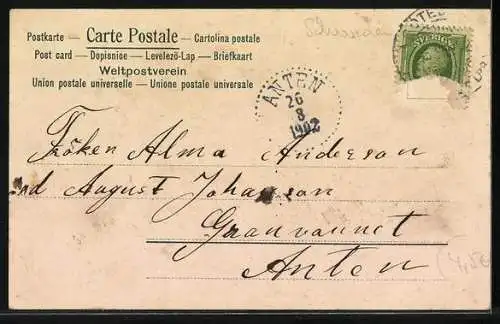 Postkarte — Carte Postale — Cartolina postale
Post card — Dopisnice — Levelező-Lap — Briefkaart
Weltpostverein
Union postale universelle — Unione postale universale
SVERIGE
ANTEN
26
8
1902
Fröken Alma Anderson
August Johansson
Anten